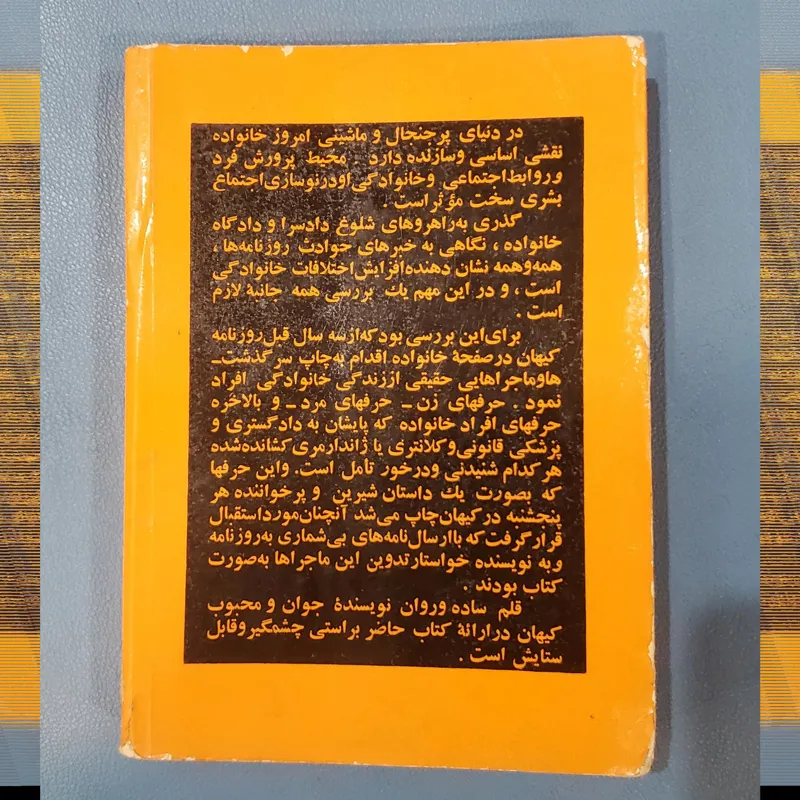 در دنیای پرجنجال و ماشینی امروز خانواده
نقشی اساسی وسازنده دارد محیط پرورش فرد
وروابط‌اجتماعی وخانوادگی‌اودرنوسازی‌اجتماع
بشری سخت مؤثراست .
گذری به‌راهروهای شلوغ دادسرا و دادگاه
خانواده ، نگاهی به خبرهای حوادث روزنامه‌ها ،
همه‌وهمه نشان دهنده‌افزایش‌اختلافات خانوادگی
است ، و در این مهم یك بررسی همه جانبهٔ لازم
است .
برای‌این بررسی بودکه‌ازسه سال قبل‌روزنامه
کیهان درصفحهٔ خانواده اقدام به‌چاپ سرگذشت‌ـ
هاوماجراهایی حقیقی اززندگی خانوادگی افراد
نمود . حرفهای زن ـ حرفهای مرد ـ و بالاخره
حرفهای افراد خانواده که پایشان به دادگستری و
پزشکی قانونی‌وکلانتری یا ژاندارمری کشانده‌شده
هرکدام شنیدنی ودرخور تأمل است. واین حرفها
که بصورت یك داستان شیرین و پرخواننده هر
پنجشنبه درکیهان‌چاپ می‌شد آنچنان‌مورداستقبال
قرارگرفت‌که باارسال‌نامه‌های بی‌شماری به‌روزنامه
وبه نویسنده خواستارتدوین این ماجراها به‌صورت
کتاب بودند .
قلم ساده وروان نویسندهٔ جوان و محبوب
کیهان درارائهٔ کتاب حاضر براستی چشمگیروقابل
ستایش است .